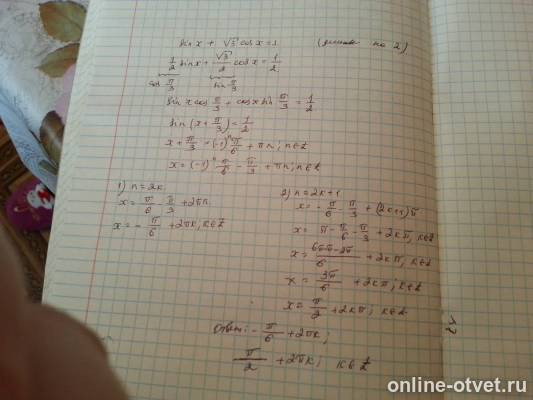 sin x + √3 cos x = 1 (делим на 2)
1/2 sin x + √3/2 cos x = 1/2
cos π/3 sin π/3
sin x cos π/3 + cos x sin π/3 = 1/2
sin (x + π/3) = 1/2
x + π/3 = (-1)ⁿ π/6 + πn; n∈Z
x = (-1)ⁿ π/6 - π/3 + πn; n∈Z
1) n = 2k
x = π/6 - π/3 + 2πn
x = - π/6 + 2πk; k∈Z
2) n = 2k+1
x = - π/6 - π/3 + (2k+1)π
x = π - π/6 - π/3 + 2kπ, k∈Z
x = 6π-π-2π/6 + 2kπ; k∈Z
x = 3π/6 + 2kπ; k∈Z
x = π/2 + 2kπ; k∈Z
Ответ: - π/6 + 2πk;
π/2 + 2πk; k∈Z
online-otvet.ru